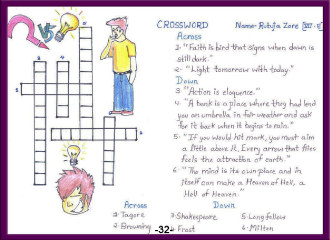 CROSSWORD
Name- Rutuja Zore
Across
1- "Faith is bird that signs when down is
still dark."
2- "Light tomorrow with today."
Down
3 "Action is eloquence."
4. "A bank is a place where they had lend
you an umbrella in fair weather and ask
for it back when it begins to rain."
5- "If you would hit mark, you must aim
a little above it, Every arrow that flies
feels the attraction of earth."
6- "The mind is its own place and in
itself can make a Heaven of Hell, a
Hell of Heaven."
Across
1- Tagore
2- Browning
Down
3-Shakespeare
4- Frost
5-Longfellow
6- Milton
-32-